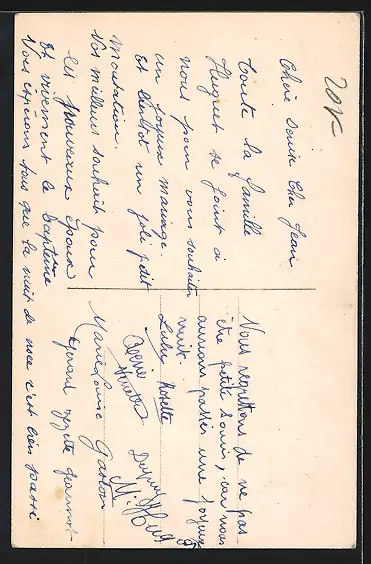 20K
Chère Denise Cher Jean
Toute la famille
Huguet se joint à
nous pour vous souhaiter
un joyeux mariage.
Et bientôt un joli petit
Vos meilleurs souhait pour
les nouveaux époux
Et vivement le baptême
Nous espérons tous que la nuit de noce s'est bien passé
Nous regrettons de ne pas
être petite souris, car nous
aurions passer une joyeuse
nuit.
Lulu Rosette
Marie Louise Gaston